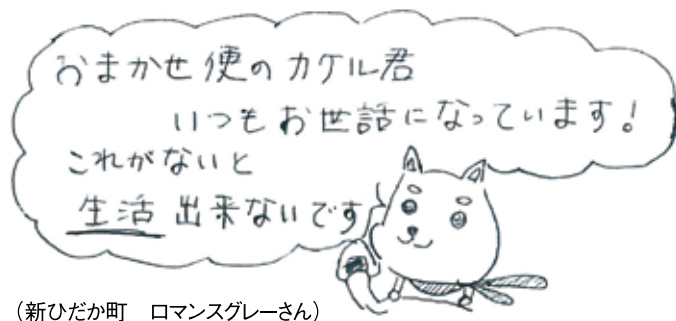 おまかせ便のカケル君
いつもお世話になっています!
これがないと
生活出来ないです
(新ひだか町 ロマンスグレーさん)